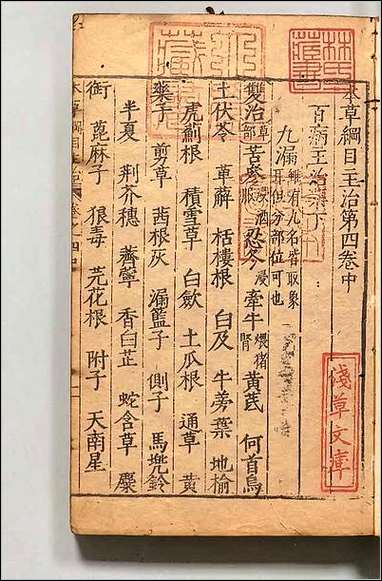 本草綱目主治第四卷中
百病主治藥下
九漏 雖有九名皆取象耳但分部位可也
雙治 草部 苦參 浸酒服 忍冬 浸 牽牛 煨猪腎 黃芪 何首烏
土伏苓 萆薢 栝樓根 白及 牛蒡葉 地榆
虎薊根 積雪草 白歛 土瓜根 通草 黃
藥子 剪草 茜根灰 漏籃子 側子 馬兜鈴
半夏 荆芥穗 薺薴 香白芷 蛇含草 麋
銜 萞麻子 狼毒 芫花根 附子 天南星
淺草文庫